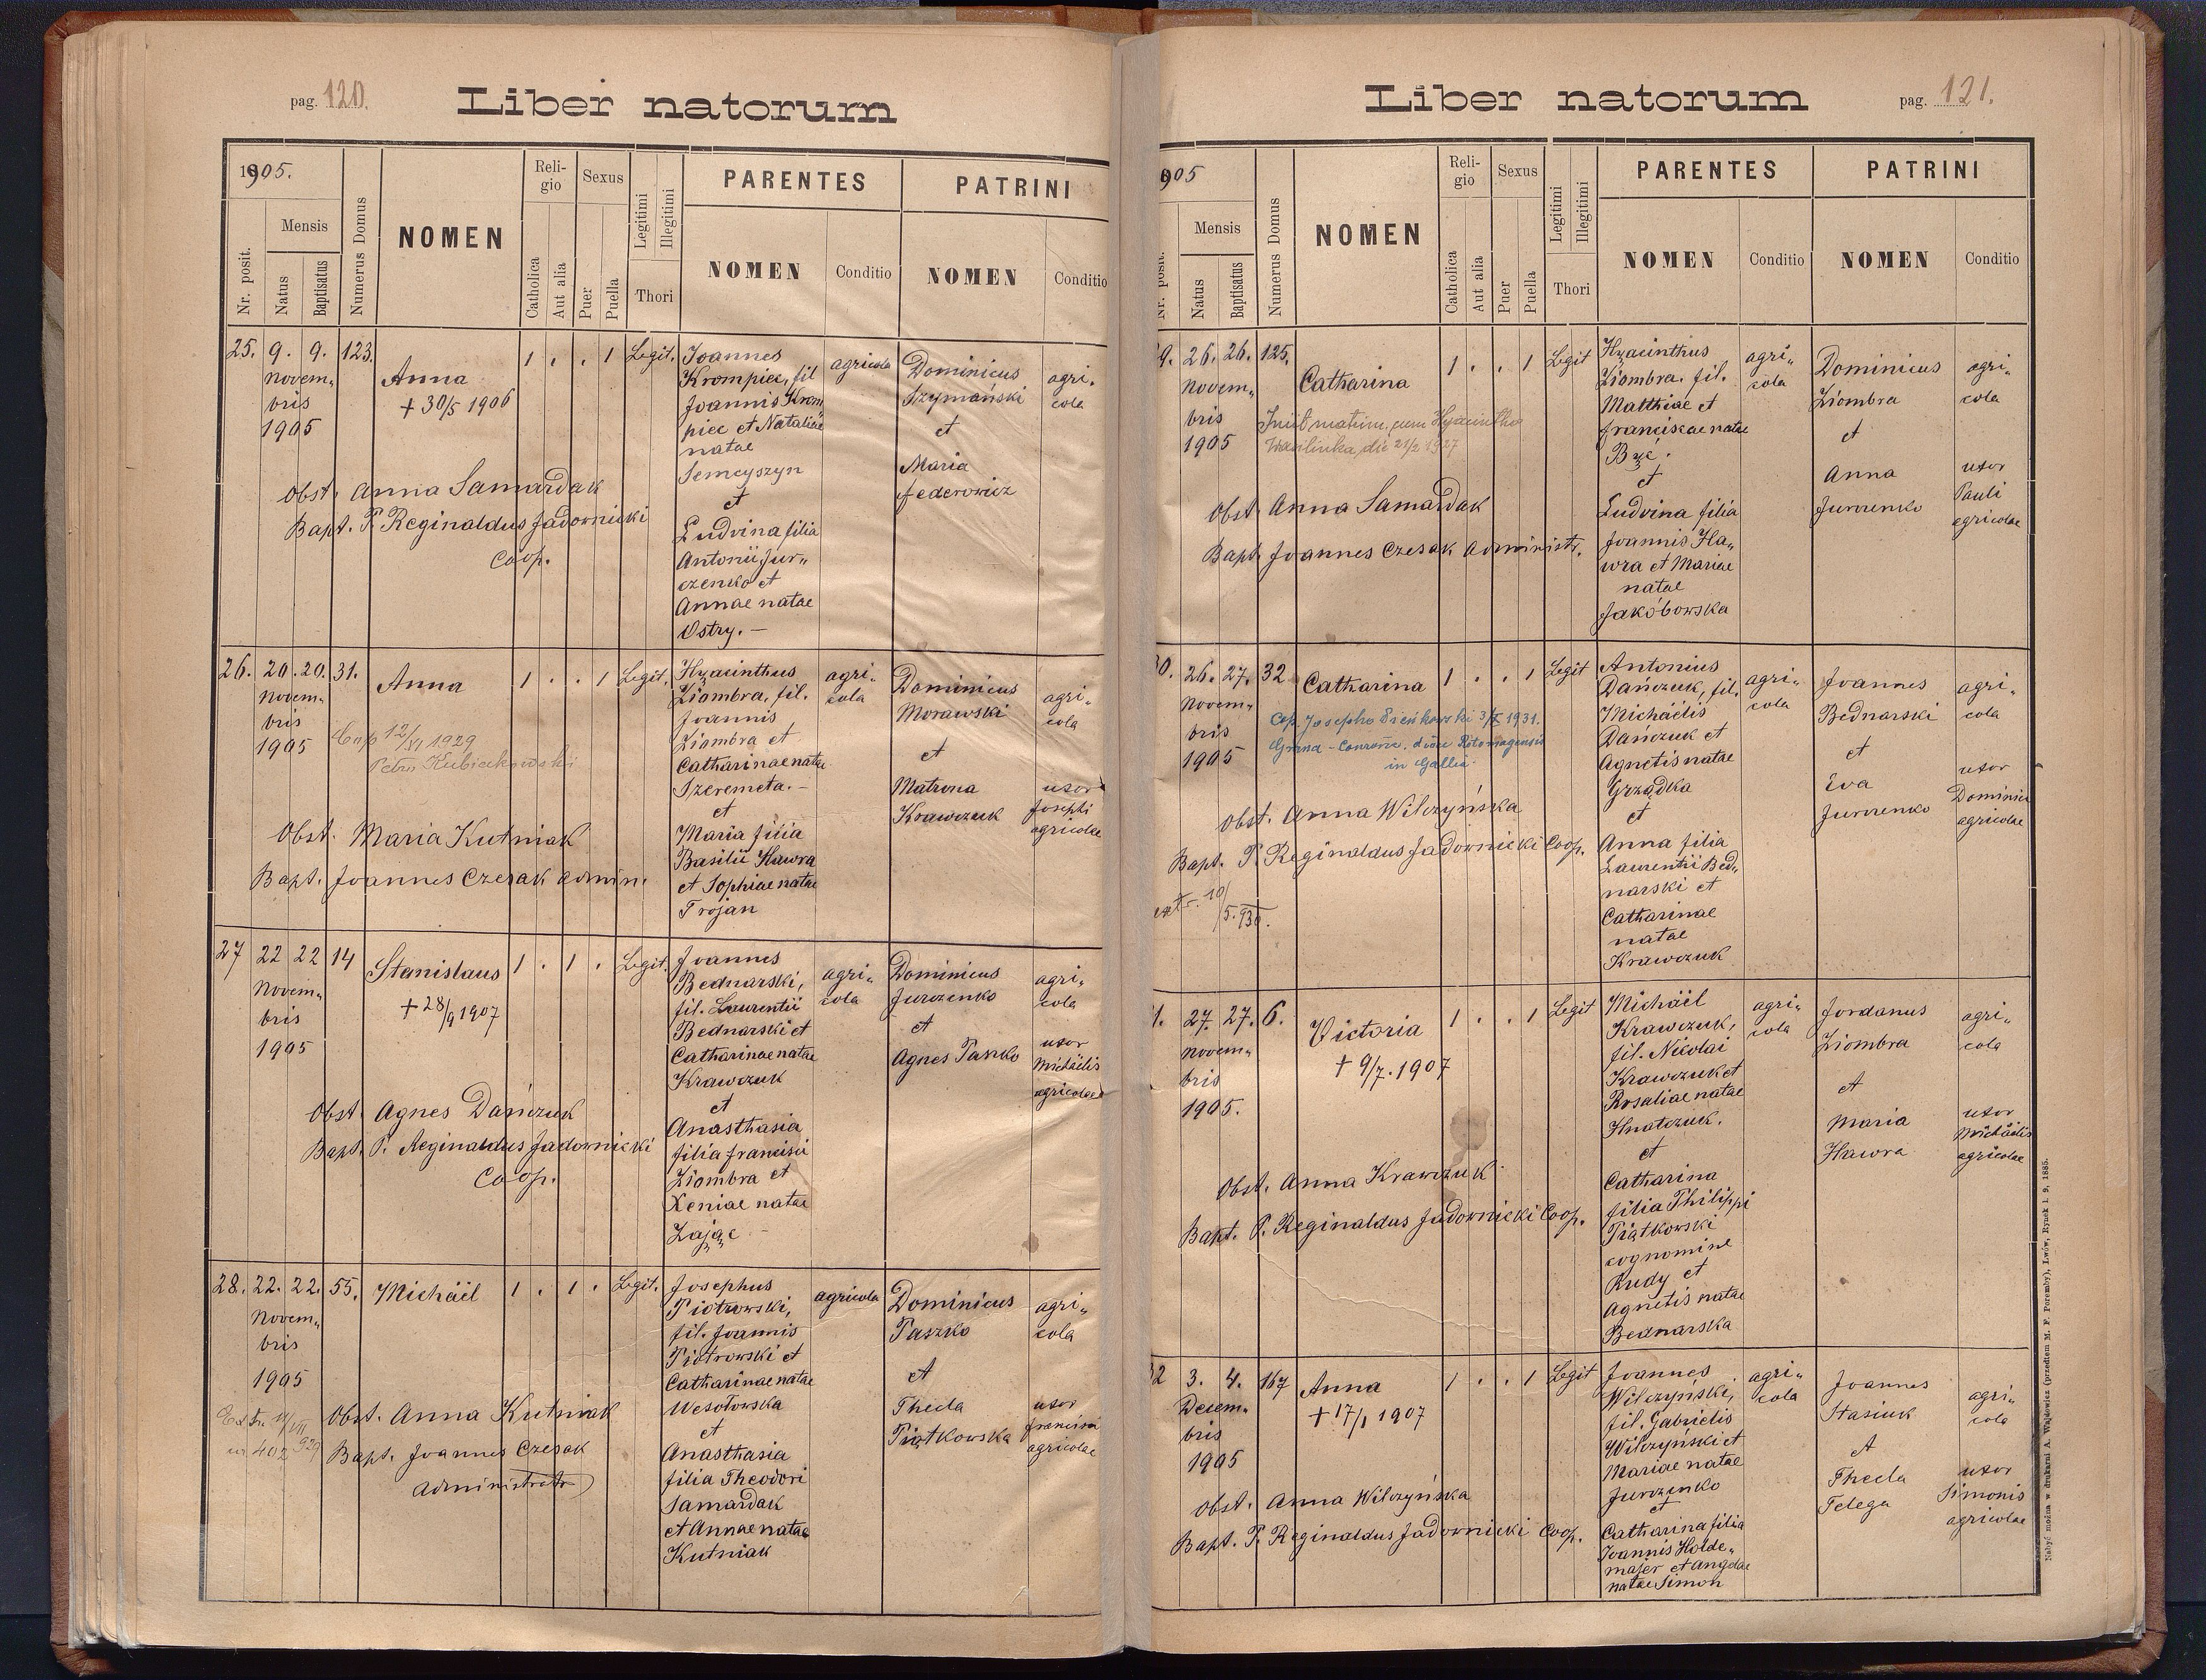 pag. 120.
Liber natorum
1905.
Nr. posit.
Mensis
Natus
Baptisatus
Numerus Domus
NOMEN
Reli-
gio
Catholica
Aut alia
Sexus
Puer
Puella
Legitimi
Illegitimi
Thori
PARENTES
NOMEN
Conditio
PATRINI
NOMEN
Conditio
25. 9. 9. 123.
Novem„
bris
1905
Anna
+ 30/5 1906
1 . . 1 Legit.
Joannes
Krompiec, fil
Joannis Krom
piec et Nataliae
natae
Semcyszyn
et
Ludvina filia
Antonii Jur„
czenko et
Annae natae
Ostry. —
agricola
Dominicus
Szymański
et
Maria
Federowicz
agri„
cola
Obst. Anna Samardak
Bapt. P. Reginaldus Jadownicki
Coop.
26. 20. 20. 31.
Novem„
bris
1905
Anna
Cop 12/XI 1929
Petro Kubiakowski
1 . . 1 Legit.
Hyacinthus
Ziombra, fil.
Joannis
Ziombra et
Catharinae natae
Szeremeta. —
et
Maria filia
Basilii Hawra
et Sophiae natae
Trojan
agri„
cola
Dominicus
Morawski
et
Matrona
Krawczuk
agri„
cola
uxor
Josephi
agricolae
Obst. Maria Kutniak
Bapt. Joannes Czesak Admin.
27 22 22 14
Novem„
bris
1905
Stanislaus
+ 28/9 1907
1 . 1 . Legit.
Joannes
Bednarski,
fil. Laurentii
Bednarski et
Catharinae natae
Krawczuk
et
Anasthasia
filia Francisci
Ziombra et
Xeniae natae
Zając
agri„
cola
Dominicus
Jurczenko
et
Agnes Paszko
agri„
cola
uxor
Michäelis
agricolae
Obst. Agnes Dańczuk
Bapt. P. Reginaldus Jadownicki
Coop.
28. 22. 22. 55.
Novem„
bris
1905
Michäel
1 . 1 . Legit.
Josephus
Piotrowski,
fil. Joannis
Piotrowski et
Catharinae natae
Wesołowska
et
Anasthasia
filia Theodori
Samardak
et Annae natae
Kutniak
agricola
Dominicus
Paszko
et
Thecla
Piątkowska
agri„
cola
uxor
Francisci
agricolae
Obst. Anna Kutniak
Bapt. Joannes Czesak
Administrator
pag. 121.
Liber natorum
905
Nr. posit.
Mensis
Natus
Baptisatus
Numerus Domus
NOMEN
Reli-
gio
Catholica
Aut alia
Sexus
Puer
Puella
Legitimi
Illegitimi
Thori
PARENTES
NOMEN
Conditio
PATRINI
NOMEN
Conditio
9. 26. 26. 125.
Novem„
bris
1905
Catharina
Iniit matrim. cum Hyacintho
Wasilinka, die 21/2 1927
1 . . 1 Legit
Hyacinthus
Ziombra. fil.
Matthiae et
Franciscae natae
Być.
et
Ludvina filia
Joannis Ha„
wra et Mariae
natae
Jakóbowska
agri„
cola
Dominicus
Ziombra
et
Anna
Jurczenko
agri„
cola
uxor
Pauli
agricolae
Obst. Anna Samardak
Bapt. Joannes Czesak Administr.
0. 26. 27. 32
Novem„
bris
1905
Catharina
Cop. Josepho Sieńkowski 3/X 1931.
Grand - Couronne. dioec Rotomagensis
in Gallia.
1 . . 1 Legit
Antonius
Dańczuk, fil.
Michäelis
Dańczuk et
Agnetis natae
Grządka
et
Anna filia
Laurentii Bed„
narski et
Catharinae
natae
Krawczuk
agri„
cola
Joannes
Bednarski
et
Eva
Jurczenko
agri„
cola
uxor
Dominici
agricolae
Obst. Anna Wilczyńska
Bapt. P. Reginaldus Jadownicki Coop.
1. 27. 27. 6.
Novem„
bris
1905.
Victoria
+ 9/7. 1907
1 . . 1 Legit
Michäel
Krawczuk,
fil. Nicolai
Krawczuk et
Rosaliae natae
Hnatczuk.
et
Catharina
filia Philippi
Piątkowski
cognomine
Rudy et
Agnetis natae
Bednarska
agri„
cola
Jordanus
Ziombra
et
Maria
Hawra
agri„
cola
uxor
Michäelis
agricolae
Obst. Anna Krawczuk
Bapt. P. Reginaldus Jadownicki Coop.
32 3. 4. 167
Decem„
bris
1905
Anna
+ 17/1 1907
1 . . 1 Legit
Joannes
Wilczyński,
fil. Gabrielis
Wilczyński et
Mariae natae
Jurczenko
et
Catharina filia
Joannis Holde„
majer et Angelae
natae Simon
agri„
cola
Joannes
Stasiuk
et
Thecla
Telega
agri„
cola
uxor
Simonis
agricolae
Obst. Anna Wilczyńska
Bapt. P. Reginaldus Jadownicki Coop.
Nabyć można w drukarni A. Wajdowicz (przedtem M. F. Poremby), Lwów, Rynek l. 9. 1885.